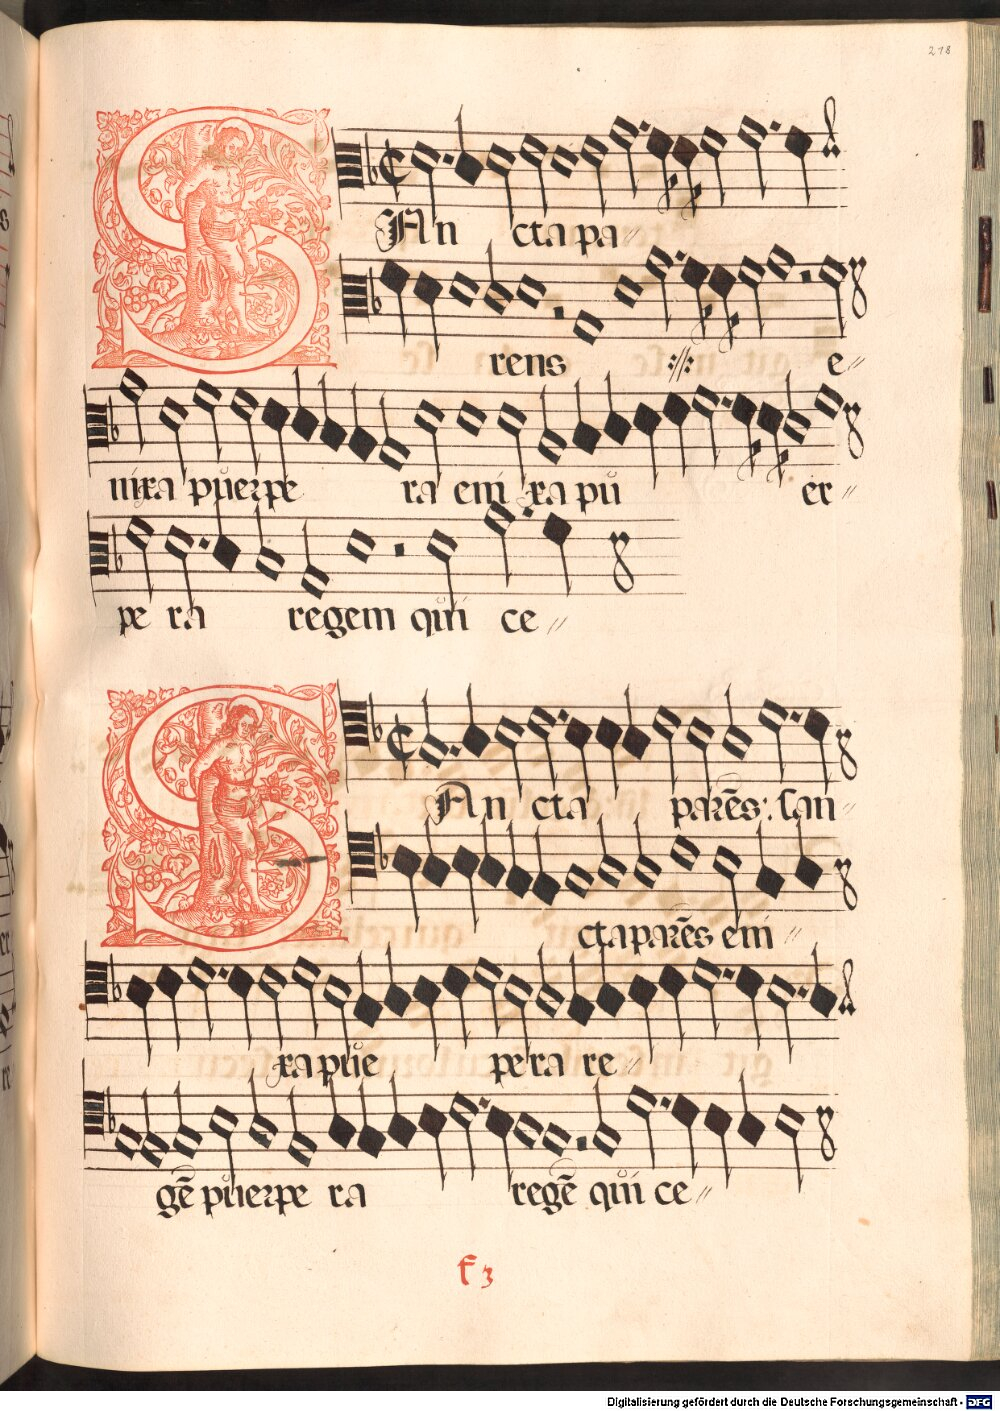 218
SAn cta pa
rens :||: e
nixa püerpe ra eni xa pü er
pe ra regem qüi ce
SAn cta parēs: San
cta parēs eni
xa püe pe ra re
gē püerpe ra regē qüi ce
f 3
Digitalisierung gefördert durch die Deutsche Forschungsgemeinschaft - DFG